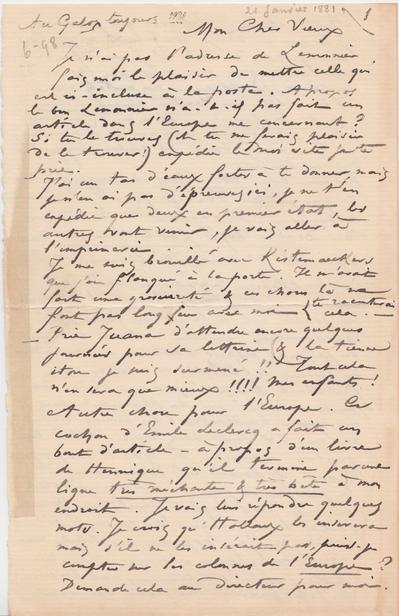 Au Galop toujours !!!!
21 Janvier 1881
1
6-98
Mon Cher Vieux
Je n'ai pas l'adresse de Lemonnier,
fais moi le plaisir de mettre celle qui
est ci-incluse à la poste. A propos
le bon Lemonnier n'a-t-il pas fait un
article dans l'Europe me concernant ?
Si tu le trouves (& tu me ferais plaisir
de le trouver!) expédie le moi vite je te
prie.
J'ai un tas d'eaux fortes à te donner, mais
je n'en ai pas d'épreuves ici, je ne t'en
expédie que deux en premier état, les
autres vont venir, je vais aller à
l'imprimerie . . .
Je me suis brouillé avec Kistemaeckers
que j'ai flanqué à la porte. Il m'avait
fait une grossièreté & ces choses là ne
font pas long feu avec moi te raconterai
cela.
Prie Juana d'attendre encore quelques
jours pour sa lettrine (& la tienne
itou je suis surmené !! Tout cela
n'en sera que mieux !!!! mes enfants !
Autre chose pour l'Europe. Ce
cochon d'Emile Leclercq a fait un
bout d'article – à propos d'un livre
de Hennique qu'il termine par une
ligne très méchante & très bête à mon
endroit. Je vais lui répondre quelques
mots. Je crois qu'Hallaux les insérera
mais s'il ne les insérait pas, puis-je
compter sur les colonnes de l'Europe ?
Demande cela au directeur pour moi.